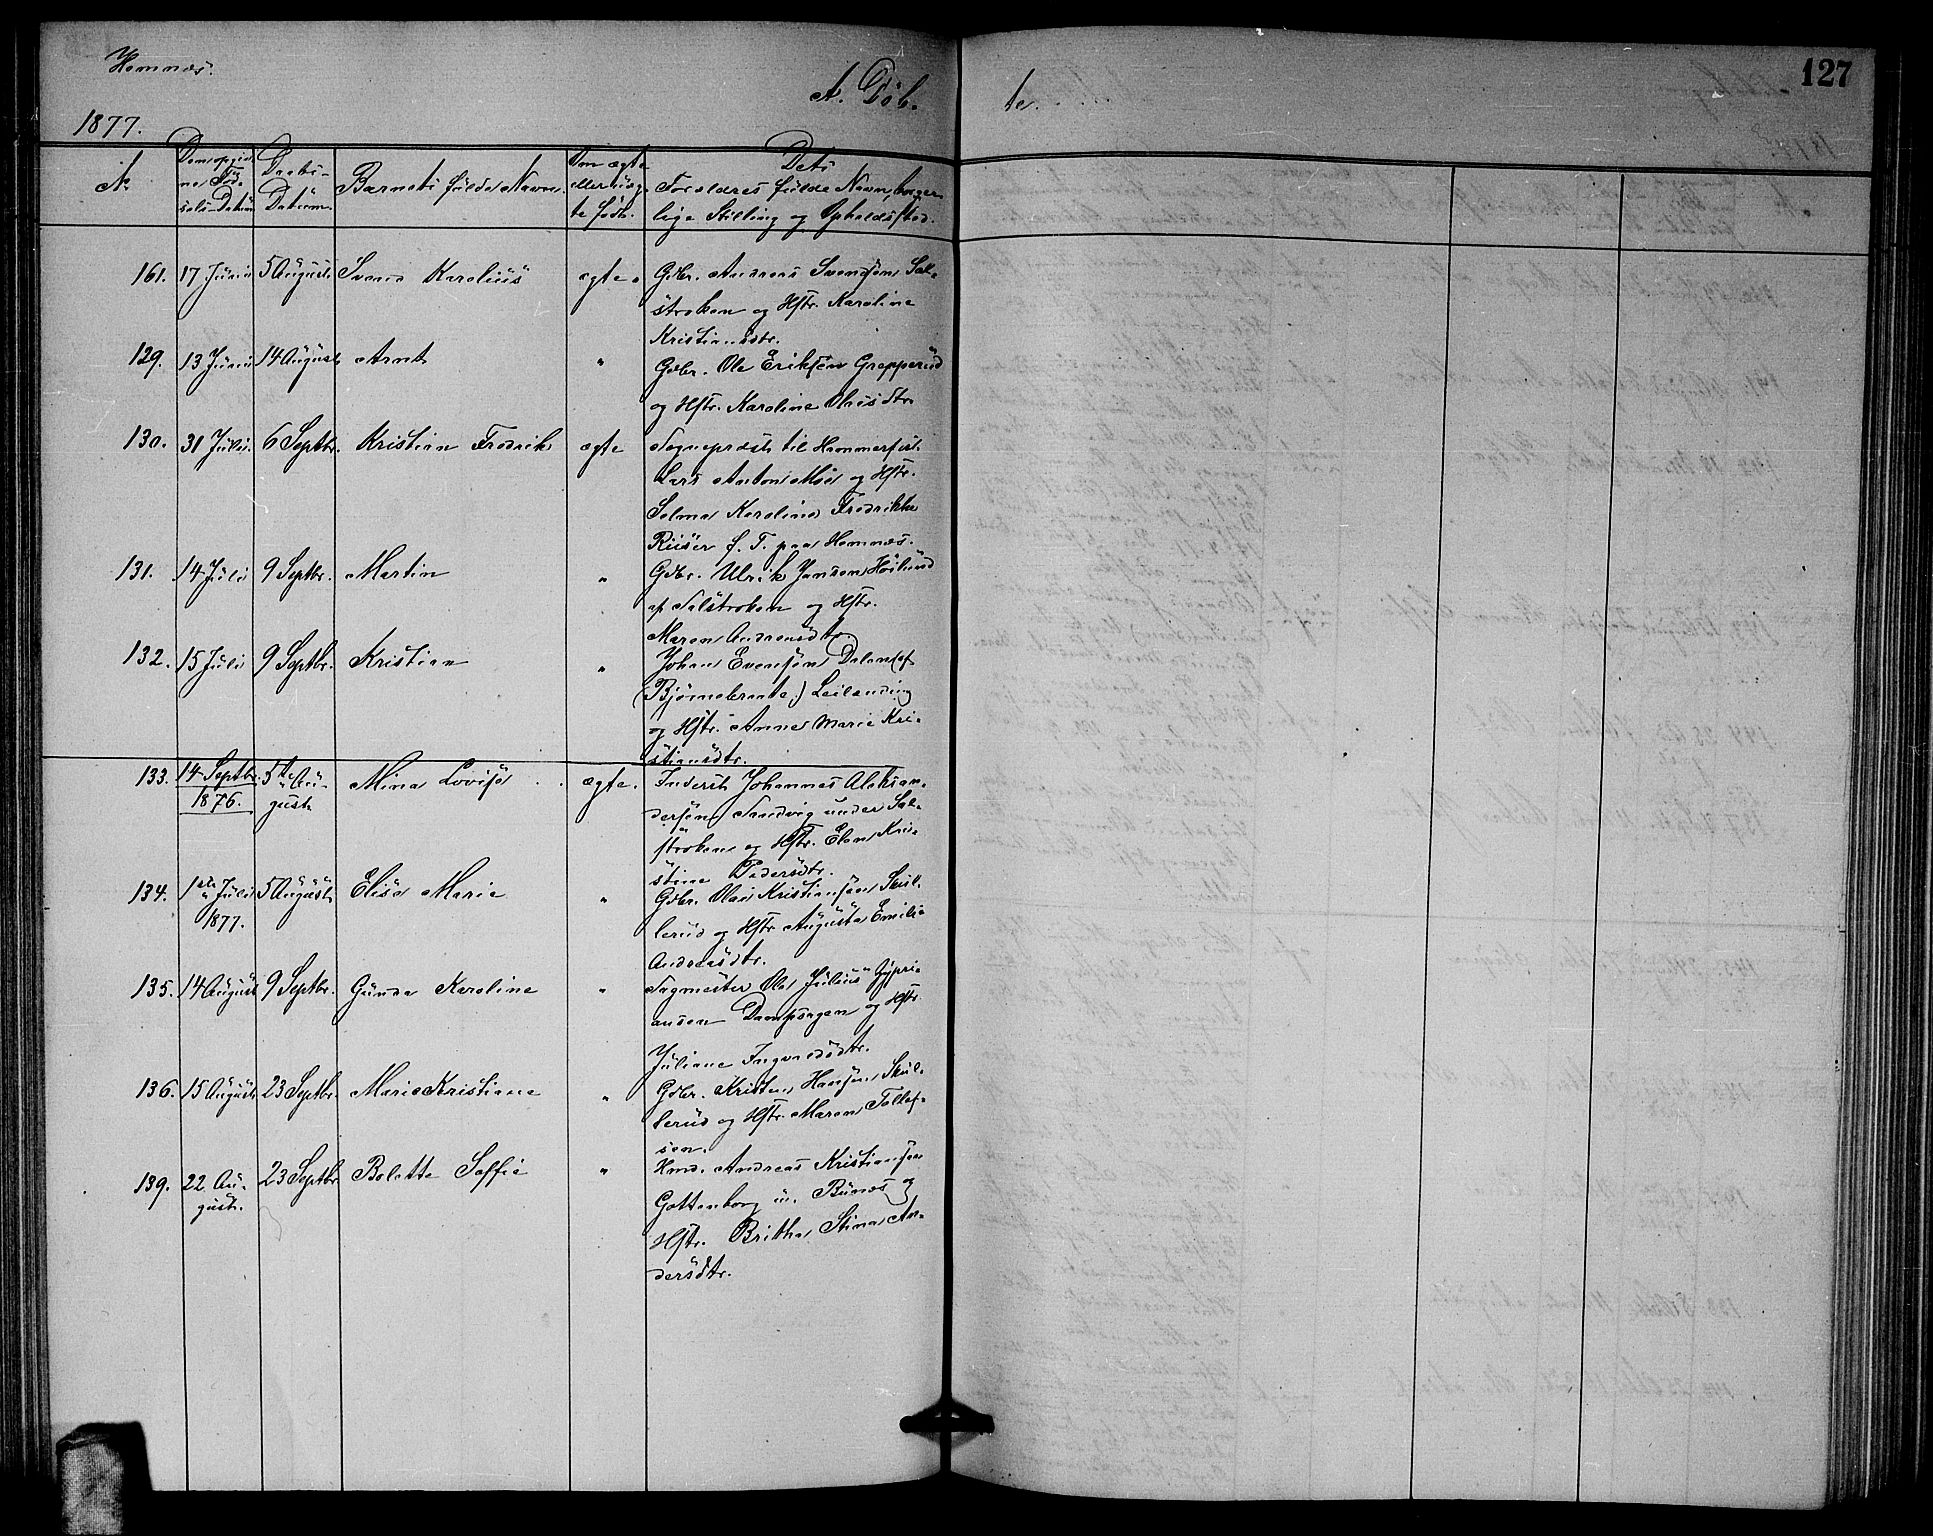 Hemnæs.
A. Døb-
te.
127
1877.
No
Den opgiv-
ne Fød-
sels-Datum
Daabs-
Datum.
Barnets fulde Navn.
Om ægte
eller uæg-
te født.
Dets
Forældres fulde Navn, borger-
lige Stilling og Opholdssted.
161. 17 Juni 5 August. Svend Karelius ægte. Gdbr. Andreas Svendsen Sal-
stroken og Hstr. Karoline
Kristiansdtr.
129. 13 Juni 14 August Arnt " Gdbr. Ole Eriksen Grepperud
og Hstr. Karoline Olausdtr.
130. 31 Juli. 6 Septbr. Kristian Fredrik ægte Sognepræst til Hammerfest
Lars Anton Moe og Hstr.
Selma Karoline Fredrikke
Riiser f. T. paa Hemnæs.
131. 14 Juli 9 Septbr. Martin " Gdbr. Ulrik Jansen Høilund
af Salstroken og Hstr.
Maren Andreasdtr.
132. 15 Juli 9 Septbr. Kristian " Johan Evensen Dalen (af
Bjørnebrote) Leilænding
og Hstr. Anne Marie Kri-
stiansdtr.
133. 14 Septbr. 1876. 5te Au-
gust Mina Lovise ægte. Inderst Johannes Aleksan-
dersen Sandvig under Sal-
stroken og Hstr. Elen Kri-
stine Pedersdtr.
134. 1ste Juli
1877. 5 August Elise Marie " Gdbr. Olai Kristiansen Skul-
lerud og Hstr Augusta Emilie
Andreasdtr.
135. 14 August 9 Septbr. Gunda Karoline " Sagmester Ole Julius Cypri-
ansen Dampsagen og Hstr.
Juliane Ingvardsdtr.
136. 15 August 23 Septbr. Marie Kristiane " Gdbr. Kristen Hansen Skul-
lerud og Hstr. Maren Tollef-
sen.
139. 22 Au-
gust. 23 Septbr Bolette Soffie " Hmd. Andreas Kristiansen
Gottenborg u. Bunæs og
Hstr. Britha Stina An-
dersdtr.